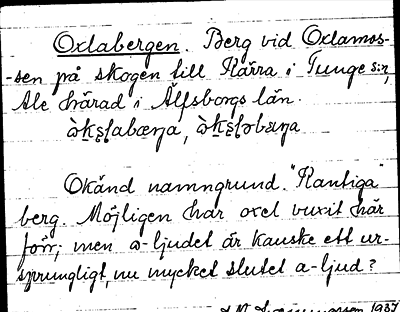 Oxlabergen. Berg vid Oxlamos-
-sen på skogen till Kärra i Tunge sn,
Ale härad i Älfsborgs län.
Okänd namngrund. "Kantiga"
berg. Möjligen har oxel vuxit här
förr; men o-ljudet är kanske ett ur-
sprungligt, nu mycket slutet a-ljud?
1937